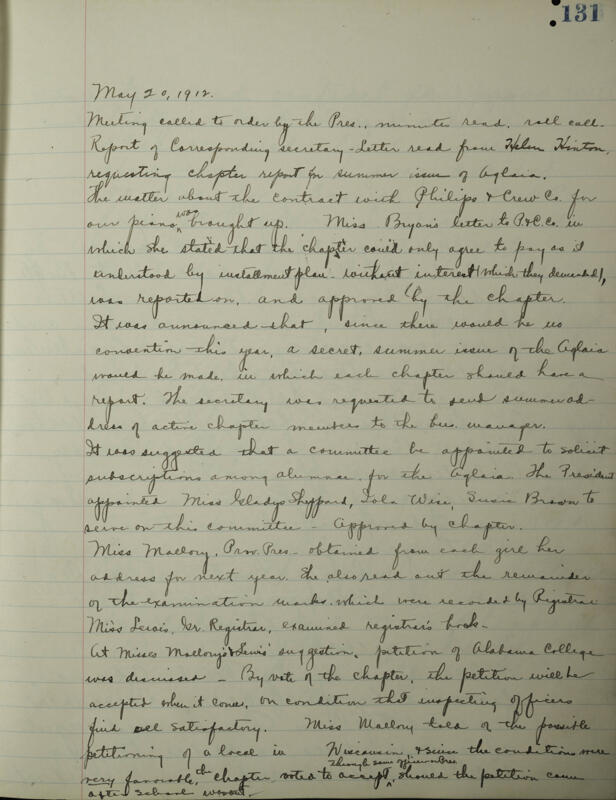 131
May 20, 1912.
Meeting called to order by the Pres., minutes read, roll call.
Report of Corresponding secretary - Letter read from Helen Hinton,
requesting chapter report for summer issue of Aglaia.
The matter about the contract with Philips & Crew Co. for
our piano was brought up. Miss Bryan's letter to P&C. Co. in
which she stated that the chapt'r could only agree to pay as it
understood by installment plan - without interest (which they demanded),
was reported on, and approved by the chapter.
It was announced that, since there would be no
convention this year, a secret, summer issue of the Aglaia
would be made, in which each chapter should have a
report. The secretary was requested to send summer ad-
dress of active chapter members to the bus. manager.
It was suggested that a committee be appointed to solicit
subscriptions among alumnae for the Aglaia. The President
appointed Miss Gladys Sheppard, Lola Wise, Susie Brown to
serve on this committee - Approved by chapter.
Miss Mallory, Prov. Pres - obtained from each girl her
address for next year. She also read out the remainder
of the examination marks which were recorded by Registrar
Miss Lewis, Gr. Registrar, examined registrar's book -
At Misses Mallory's & Lewis' suggestion, petition of Alabama College
was discussed - By vote of the chapter, the petition will be
accepted when it comes, on condition that inspecting officers
find all satisfactory. Miss Mallory told of the possible
petitioning of a local in Wisconsin, & since the conditions were
very favorable, the chapter voted to accept, should the petition come
after school